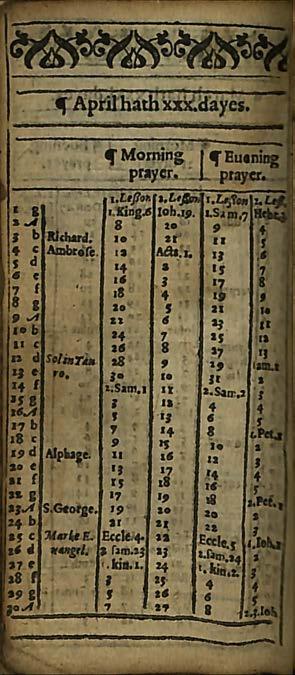 ¶ April hath xxx.dayes.
¶ Morning prayer. ¶ Euening prayer.
1.Lesson 2.Lesson 1.Lesson 2.Less
1 g 1.King.6 Ioh.19. 1.Sam.7 Hebr.3
2 A 8 20 9 4
3 b Richard. 10 21 11 5
4 c Ambrose. 12 Acts.1. 13 6
5 d 14 2 15 7
6 e 16 3 17 8
7 f 18 4 19 9
8 g 20 5 21 10
9 A 22 6 23 11
10 b 24 7 25 12
11 c 26 8 27 13
12 d Sol in Tau 28 9 29 Iam.1
13 e ro. 30 10 31 2
14 f 2.Sam.1 11 2.Sam.2 3
15 g 3 12 4 4
16 A 5 13 6 5
17 b 7 14 8 1.Pet.1
18 c 9 15 10 2
19 d Alphage. 11 16 12 3
20 e 13 17 14 4
21 f 15 18 16 5
22 g 17 19 18 2.Pet.1
23 A S.George. 19 20 20 2
24 b 21 21 22 3
25 c Marke E. Eccle.4. 22 Eccle.5 1.Ioh.1
26 d uangel. 2 sam.23 23 2.sam.24 2
27 e 1.kin.1. 24 1.kin.2. 3
28 f 3 25 4 4
29 g 5 26 6 5
30 A 7 27 8 2.3.Ioh